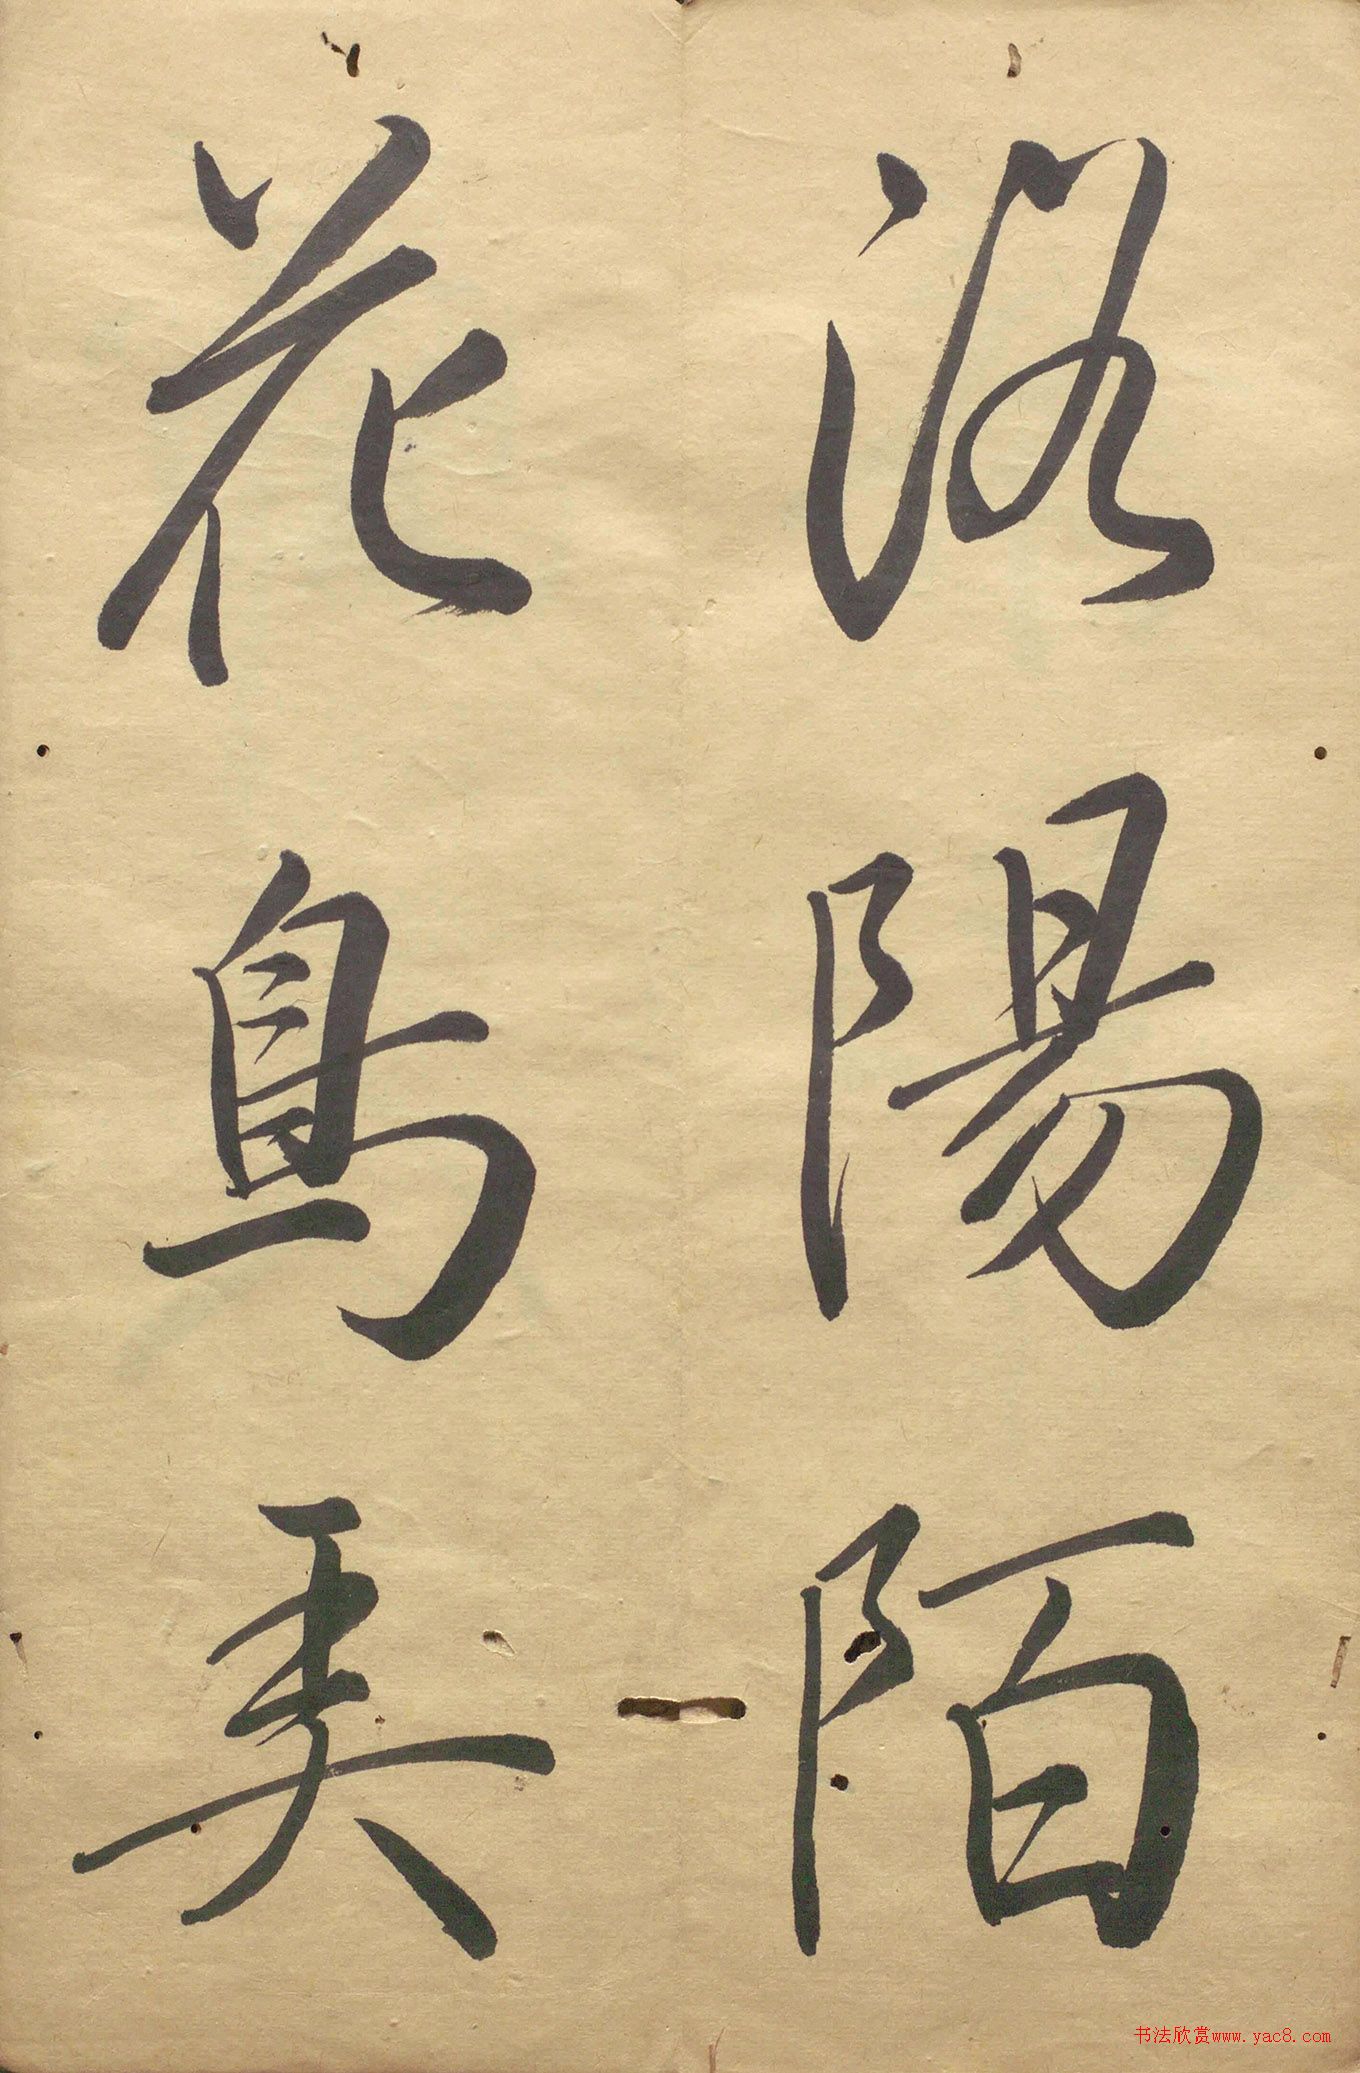 洛陽陌
花鳥美
书法欣赏www.yac8.com